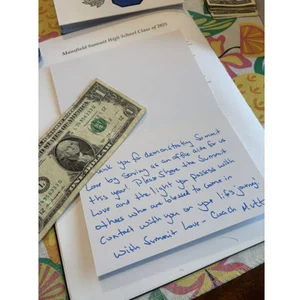 Mansfield Summit High School Class of 2025
Thank you for demonstrating Summit
Love by serving as an office aide for us
this year. Please share the Summit
Love and the light you possess with
others who are blessed to come in
contact with you on your life's journey!
With Summit Love - Coach